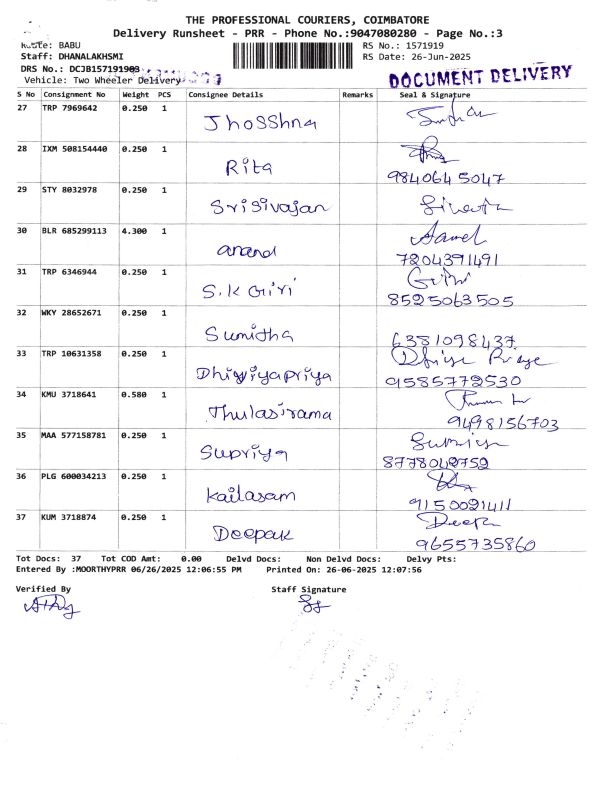 THE PROFESSIONAL COURIERS, COIMBATORE
Delivery Runsheet - PRR - Phone No.:9047080280 - Page No.:3
Route: BABU RS No.: 1571919
Staff: DHANALAKHSMI RS Date: 26-Jun-2025
DRS No.: DCJB157191903
Vehicle: Two Wheeler Delivery DOCUMENT DELIVERY
S No Consignment No Weight PCS Consignee Details Remarks Seal & Signature
27 TRP 7969642 0.250 1
Jhosshna
28 IXM 508154440 0.250 1
Rita 9840645047
29 STY 8032978 0.250 1
Srisivajan
30 BLR 685299113 4.300 1
anand 7204391491
31 TRP 6346944 0.250 1
S.K Giri 8525063505
32 WKY 28652671 0.250 1
Sumitha 6381098437
33 TRP 10631358 0.250 1
Dhivyapriya 9585772530
34 KMU 3718641 0.580 1
Thulasirama 9498156703
35 MAA 577158781 0.250 1
Supriya 8778042752
36 PLG 600034213 0.250 1
Kailasam 9150091411
37 KUM 3718874 0.250 1 Deepk
Deepak 9655735860
Tot Docs: 37 Tot COD Amt: 0.00 Delvd Docs: Non Delvd Docs: Delvy Pts:
Entered By :MOORTHYPRR 06/26/2025 12:06:55 PM Printed On: 26-06-2025 12:07:56
Verified By Staff Signature